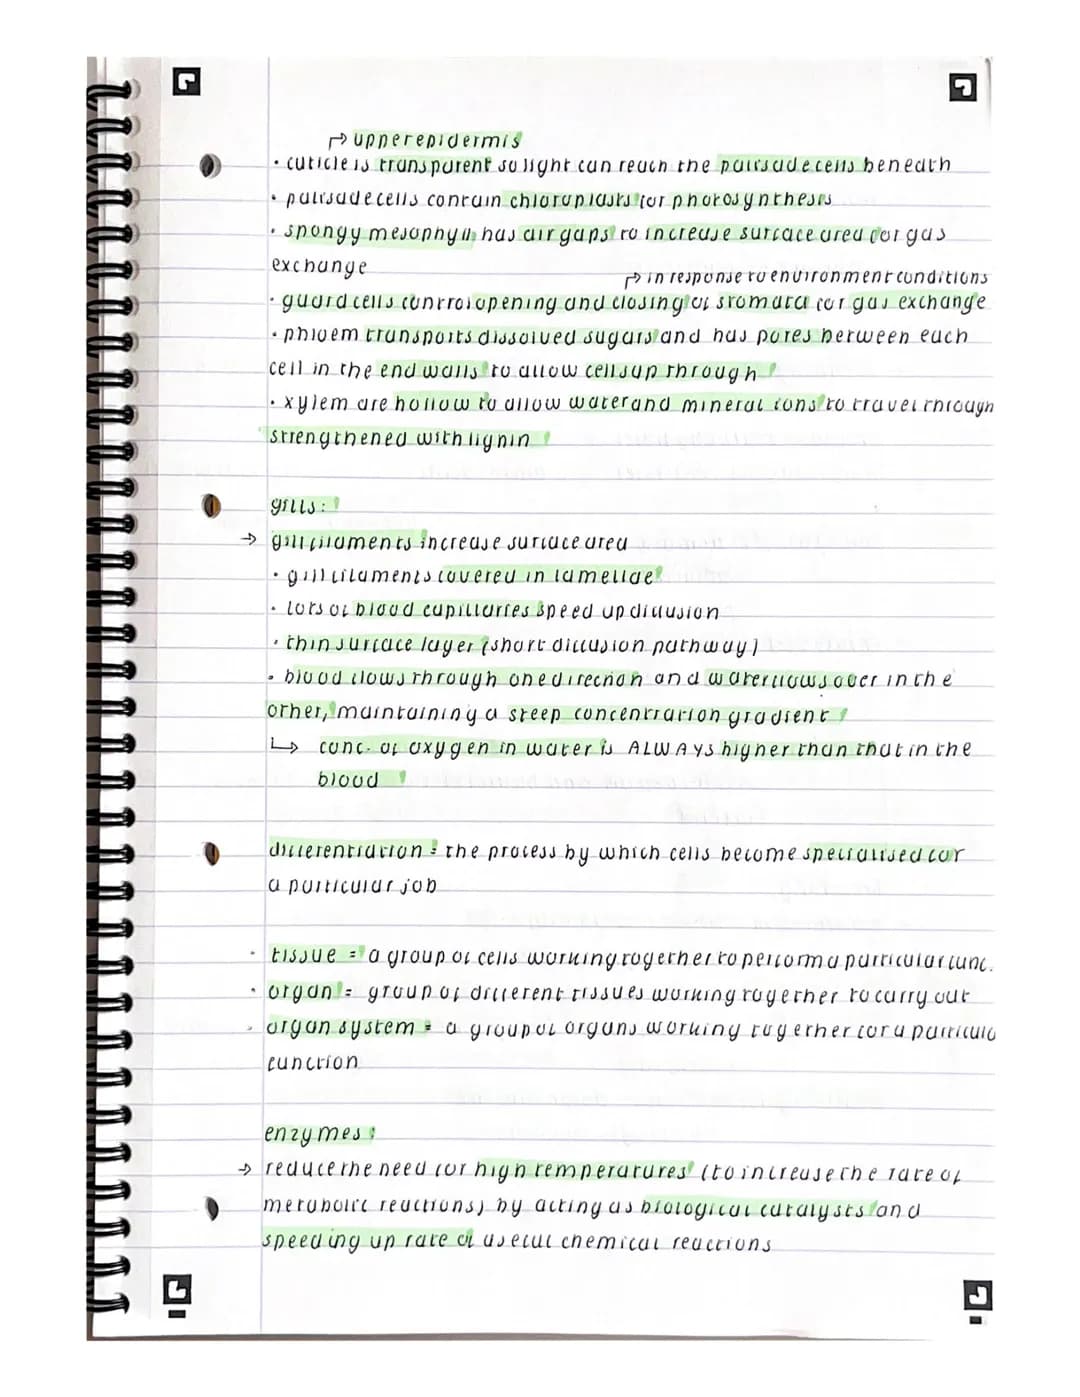 ↱ upper epidermis
• cuticle is transparent so light can reach the palisade cells beneath
• palisade cells contain chloroplasts for photosynthesis
• spongy mesophyll has air gaps to increase surface area for gas
exchange
↱ in response to environment conditions
• guard cells control opening and closing of stomata for gas exchange
• phloem transports dissolved sugars and has pores between each
cell in the end walls to allow cell sap through
• xylem are hollow to allow water and mineral ions to travel through
strengthened with lignin
gills:
→ gill filaments increase surface area
• gill filaments covered in lamellae
• lots of blood capillaries speed up diffusion
• thin surface layer (short diffusion pathway)
• blood flows through one direction and water flows over in the
other, maintaining a steep concentration gradient
↳ conc. of oxygen in water is ALWAYS higher than that in the
blood
differentiation = the process by which cells become specialised for
a particular job
• tissue = a group of cells working together to perform a particular func.
• organ = group of different tissues working together to carry out
• organ system = a group of organs working together for a particula
function
enzymes:
→ reduce the need for high temperatures (to increase the rate of
metabolic reactions) by acting as biological catalysts and
speeding up rate of useful chemical reactions